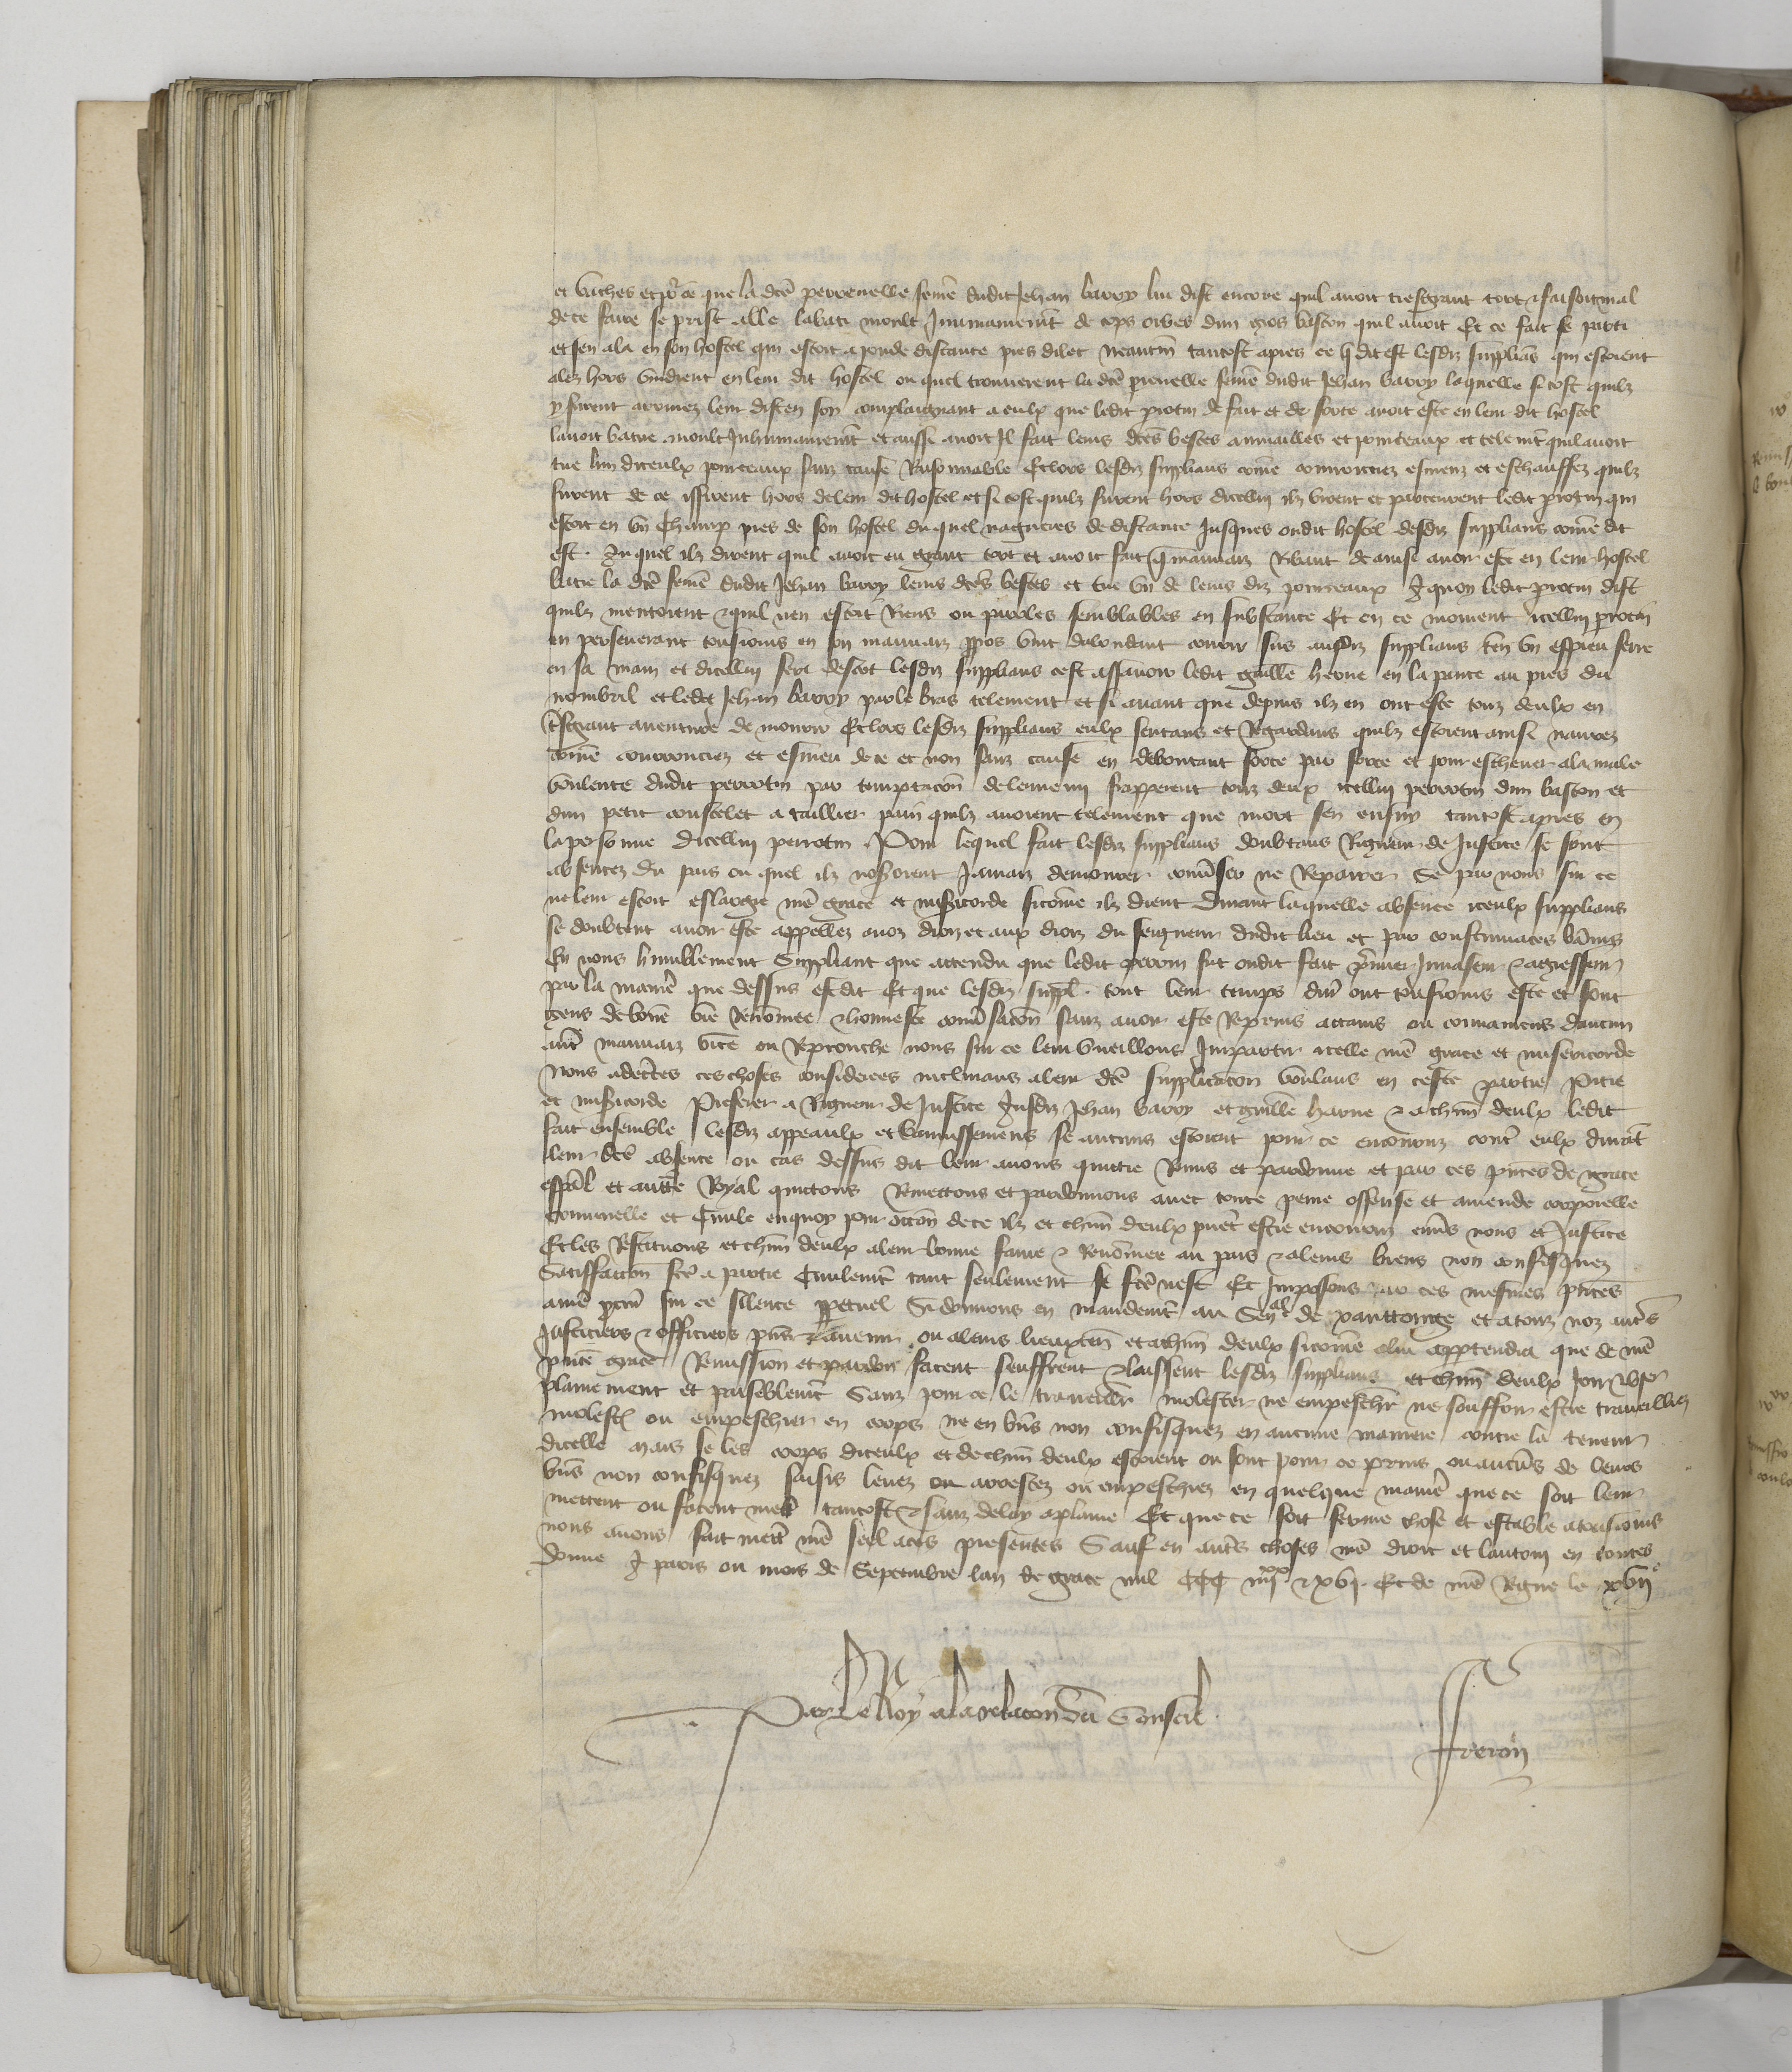 et vaches et pͬ ce que la dc̃e perrenelle fem̃e dudit Jehan barry lui dist encore quil auoit tresgrant tort ⁊ faisoit mal
de ce faire se prist a elle labati moult Jnhumainemt̃ de cops orbes dun gros baston quil auoit Et ce fait se parti
et sen ala en son hostel qui estoit a po de distance pres dilec neantm̃ tantost apres ce q̃ dit est lesdiz supplians qui estoient
alez hors vindrent en leur dit hostel ou quel trouuerent la dc̃e peronelle fem̃e dudit Jehan barry laquelle si tost quilz
y furent arriuez leur dist en son complaignant a eulx que ledit perotin de fait et de force auoit este en leur dit hostel
lauoit batue moult Jnhumainemt̃ et aussi auoit Jl fait leurs dc̃es bestes aumailles et pourceaux et telemt̃ quil auoit
tue lun diceulx pourceaux sanz cause Raisonnable Et lors lesdiz supplians com̃e courrouciez esmeuz et eschauffez quilz
furent de ce issirent hors de leur dit hostel et si tost quilz furent hors dicellui ilz virent et parceurent ledit perotin qui
estoit en vn champ pres de son hostel du quel nagueres de distance Jusques oudit hostel desdiz supplians com̃e dit
est. Au quel ilz dirent quil auoit eu grant tort et auoit fait q̃ mauuaiz Ribaut de ainsi auoir este en leur hostel
batre la dc̃e fem̃e dudit Jehan barry leurs dc̃es bestes et tue vn de leurs diz pourceaux A quoy ledit perotin dist
quilz mentoient ⁊ quil nen estoit Riens ou paroles semblables en substance Et en ce moment icellui perotin
en perseuerant tousiours en son mauuaiz ꝓpos vint dabondant courir sus ausdiz supplians tenãt vn espieu ferre
en sa main et dicellui feri destoc lesdiz supplians cest assauoir ledit guille herue en la pance au pres du
nombril et ledit Jehan barry par le bras telement et si auant que depuis ilz en ont este touz deulx en
tresgrant auenture de mourir Et lors lesdiz supplians eulx sentans et Regardans quilz estoient ainsi naurez
com̃e courrouciez et esmeu de ce et non sanz cause en deboutant force par force et pour escheuer a la male
voulente dudit perrotin par temptacõn de lennemi frapperent touz deux icellui perrotin dun baston et
dun petit coustelet a taillier pain quilz auoient telement que mort sen ensuy tantost apres en
la personne dicellui perrotin. Pour lequel fait lesdiz supplians doubtans Rigueur de Justice se sont
absentez du pais ou quel ilz noseroient Jamaiz demourer conũser ne Reparer Se par nous sur ce
ne leur estoit eslargie nr̃e grace et misericorde sicom̃e ilz dient Durant laquelle absence iceulx supplians
se doubtent auoir este appellez a noz droiz et aux droiz du seigneur dudit lieu et par contumaces baniz
En nous humblement Suppliant que attendu que ledit perrotin fut oudit fait pr̃mier Jnuaseur ⁊ agresseur
par la manier̃ que dessus est dit Et que lesdiz suppl. tout leur temps dur̃ ont tousiours este et sont
gens de bon̄e vie Renom̃ee ⁊ honneste conũsacõn sanz auoir este Reprins attains ou conuaincus daucun
autr̃ mauuaiz vice ou Reprouche nous sur ce leur vueillons Jmpartir icelle nr̃e grace et misericorde
Nous adec̃tes ces choses considerees inclinans a leur dc̃e supplicacõn voulans en ceste partie Pitie
et misericorde Preferer a Rigueur de Justice Ausdiz Jehan barry et guille herue ⁊ a chũn deulx ledit
fait ensemble lesdiz appeaulx et bannissemens se aucuns estoient pour ce encouruz contr̃ eulx durãt
leur dc̃e absence ou cas dessus dit leur auons quitte Remis et pardonne et par ces pñtes de grace
esp̃al et auttẽ Royal quittons Remettons et pardonnons auec toute peine offense et amende corporelle
criminelle et Ciuile enquoy pour occõn de ce ilz et chũn deulx peuẽt estre encouruz enũs nous et Justice
Et les Restituons et chũn deulx a leur bonne fame ⁊ Renom̃ee au pais ⁊ a leurs biens non confisquez
Satisfaccõn fc̃e a partie Ciuilemt̃ tant seulement se fc̃e nest Et Jmposons par ces mesmes pñtes
a nr̃e ꝓcur̃ sur ce silence ꝑpetuel Si donnons en mandemt̃ au Senal de xanttonge et a touz noz autr̃s
Justiciers ⁊ officiers pñs ⁊ auenir ou a leurs lieuxtẽn et a chũn deulx sicom̃e a lui appartendra que de nr̃e
pñte grace Remission et pardon facent seuffrent ⁊ laissent lesdiz supplians et chũn deulx Joir ⁊ vser
plainement et paisiblemt̃ Sanz pour ce les trauaillr̃ molester ne empeschr̃ ne souffrir estre trauaillez
molestez ou empeschier en corps ne en bñs non confisquez en aucune maniere contre la teneur
dicelle Mais se les corps diceulx et de chũn deulx estoient ou sont pour ce prins ou aucũs de leurs
bñs non confisquez saisis leuez ou arrestez ou empeschiez en quelque manier̃ que ce soit leur
mettent ou facent mett̃ tantost ⁊ sanz delay a plaine Et que ce soit ferme chose et estable a tousiours
nous auons fait mett̃ nr̃e seel a ces presentes Sauf en autr̃s choses nr̃e droit et lautrui en toutes
Donne A paris ou mois de Septembre lan de grace mil CCC iiijxx ⁊ xvj. Et de nr̃e Regne le xvije
Par le Roy a la relacõn du Conseil.
Freron